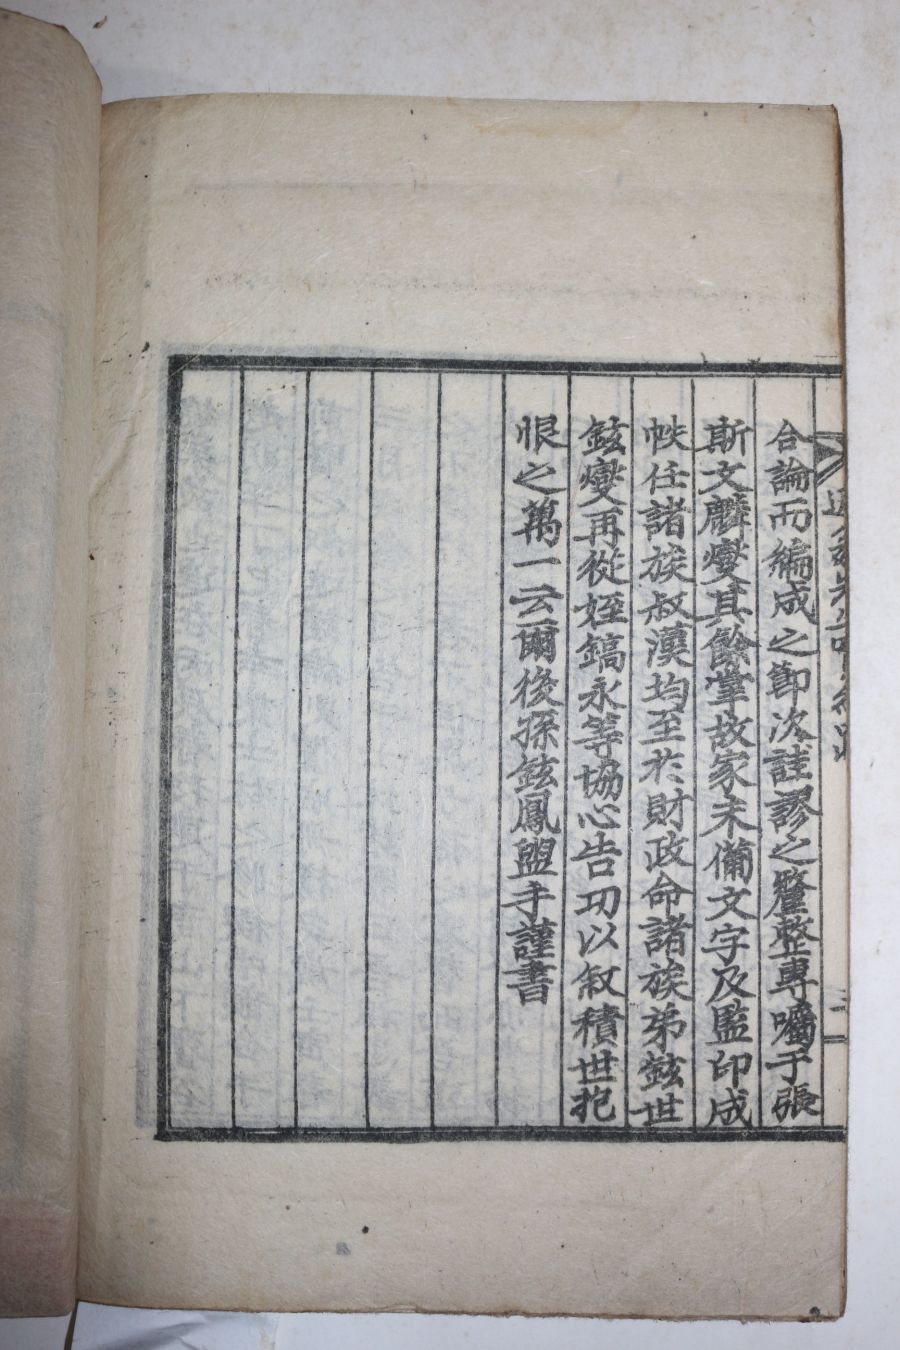 合論而編成之節次註謬之釐整專囑于張
斯文麟燮其餘掌故家未備文字及監印成
帙任諸族叔漢均至於財政命諸族弟鉉世
鉉燮再從姪鎬永等協心告功以敍積世抱
恨之萬一云爾後孫鉉鳳盥手謹書